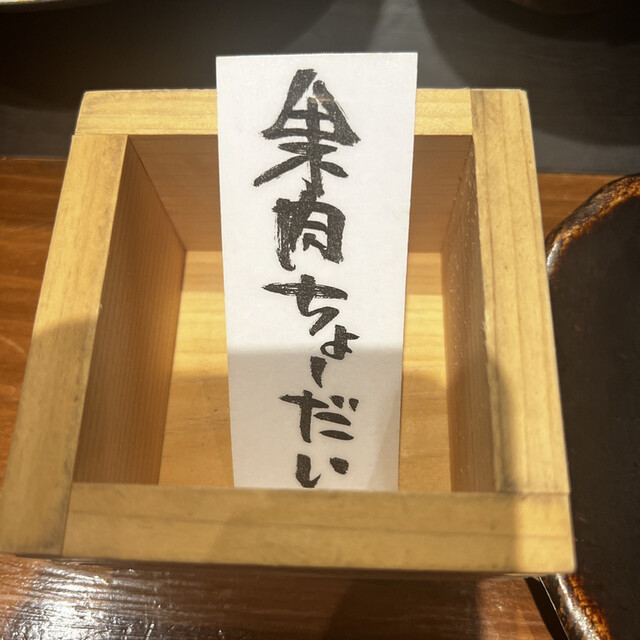 果肉ちょーだい